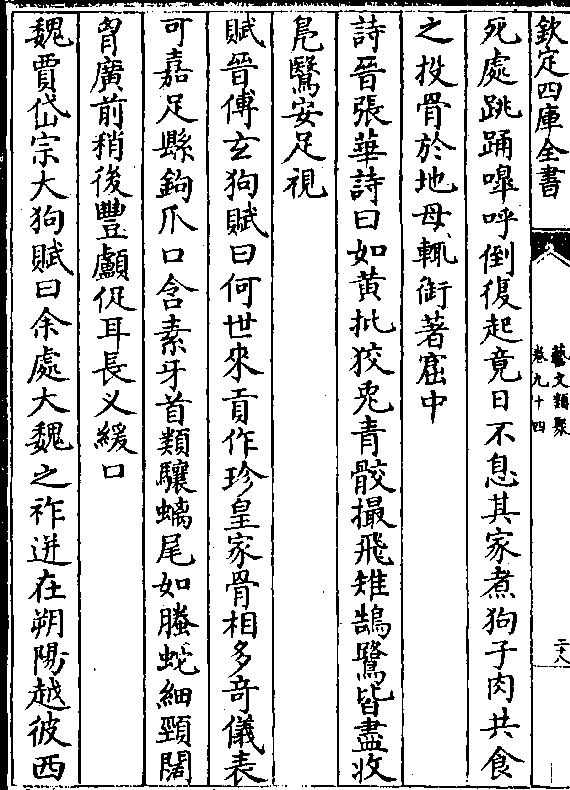 欽定四庫全書
藝文類聚
卷九十四
二十八
死處跳踊嘷呼倒復起竟日不息其家煮狗子肉共食
之投骨於地母輒銜著窟中
詩晉張華詩曰如黃批狡兎青骹撮飛雉鵠鷺皆盡收
鳧鷖安足視
賦晉傅玄狗賦曰何世來貢作珍皇家骨相多奇儀表
可嘉足縣鉤爪口含素牙首類驤螭尾如騰蛇細頸闊
胷廣前稍後豐顱促耳長义緩口
魏賈岱宗大狗賦曰余處大魏之祚迸在朔陽越彼西